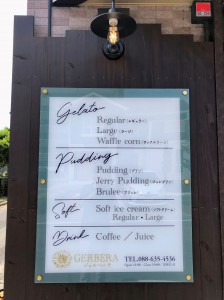 Gelato
Regular(レギュラー)
Large(ラージ)
Waffle corn(ワッフルコーン)
Pudding
Pudding(プリン)
Jerry Pudding(ジェリープリン)
Brulee(ブリュレ)
Soft
Soft ice cream(ソフトクリーム)
Regular・Large
Drink
Coffee / Juice
GERBERA
TEL.088-635-4536